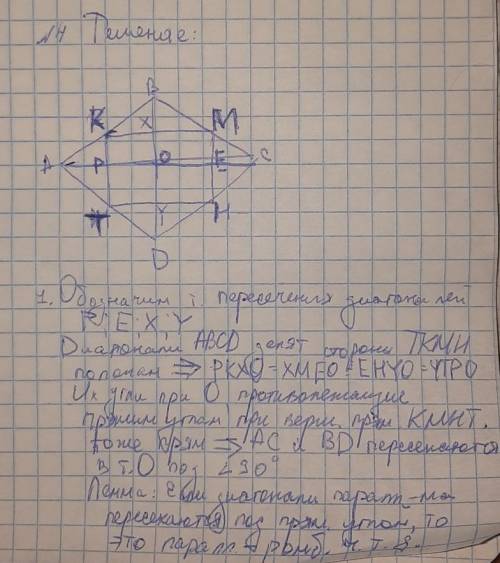 №4 Решение:
B
K X M
A P O E C
T Y H
D
1. Обозначим т. пересечения диагоналей
P; E; X; Y
Диагонали ABCD делят стороны TKMH
пополам ⇒ PKXO = XMEO = EHYO = YTPO
Их углы при O противолежащие
прямым углам при верш. прям KMHT.
тоже прям ⇒ AC и BD пересекаются
в т. O под ∠90°
Лемма: Если диагонали паралл-ма
пересекаются под прям. углом, то
это паралл - ромб. ч. т. д.